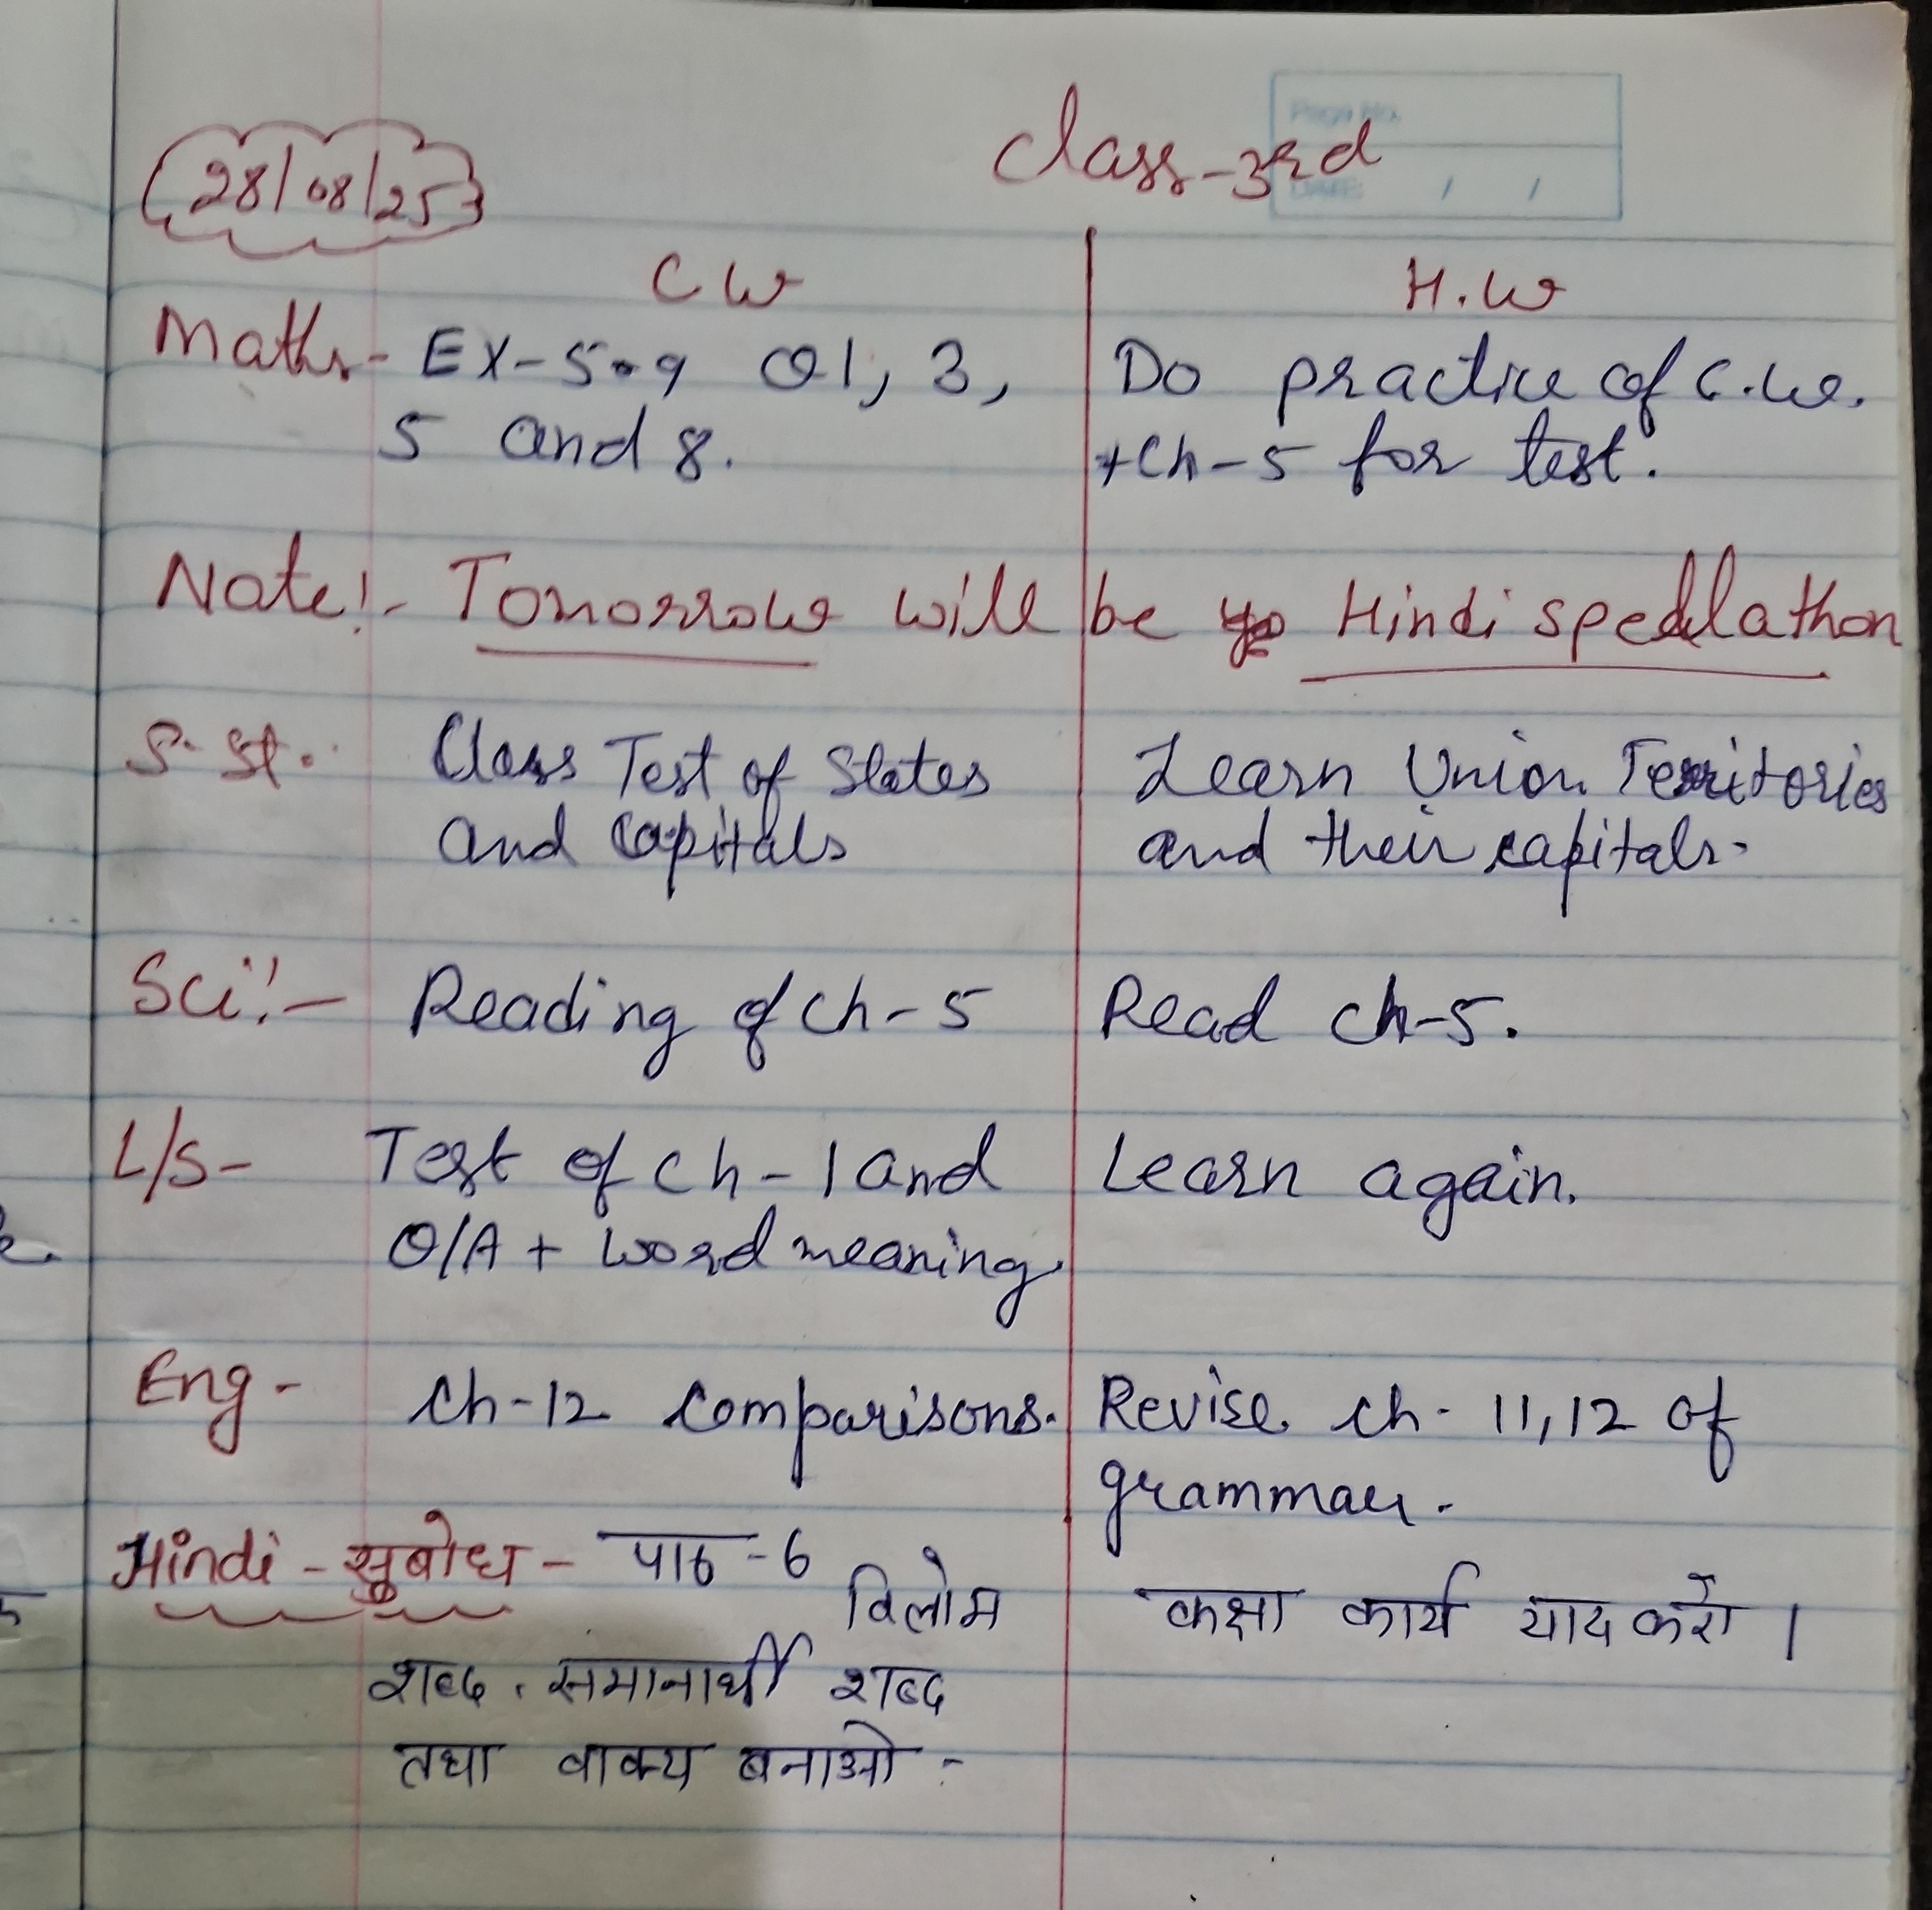 Page No.
DATE: / /
28/08/25
Class-3rd
CW
H.W
Maths- Ex-5.9 Q1, 3,
5 and 8.
Do practice of C.W.
+Ch-5 for test.
Note:- Tomorrow will be Hindi spellathon
S.St. Class Test of States
and capitals
Learn Union Territories
and their capitals.
Sci:- Reading of Ch-5
Read ch-5.
L/S- Test of Ch-1 and
Q/A + Word meaning.
Learn again.
Eng- Ch-12 Comparisons.
Revise ch- 11,12 of
grammar.
Hindi - सुबोध - पाठ-6
विलोम
शब्द, समानार्थी शब्द
तथा वाक्य बनाओ -
कक्षा कार्य याद करो ।